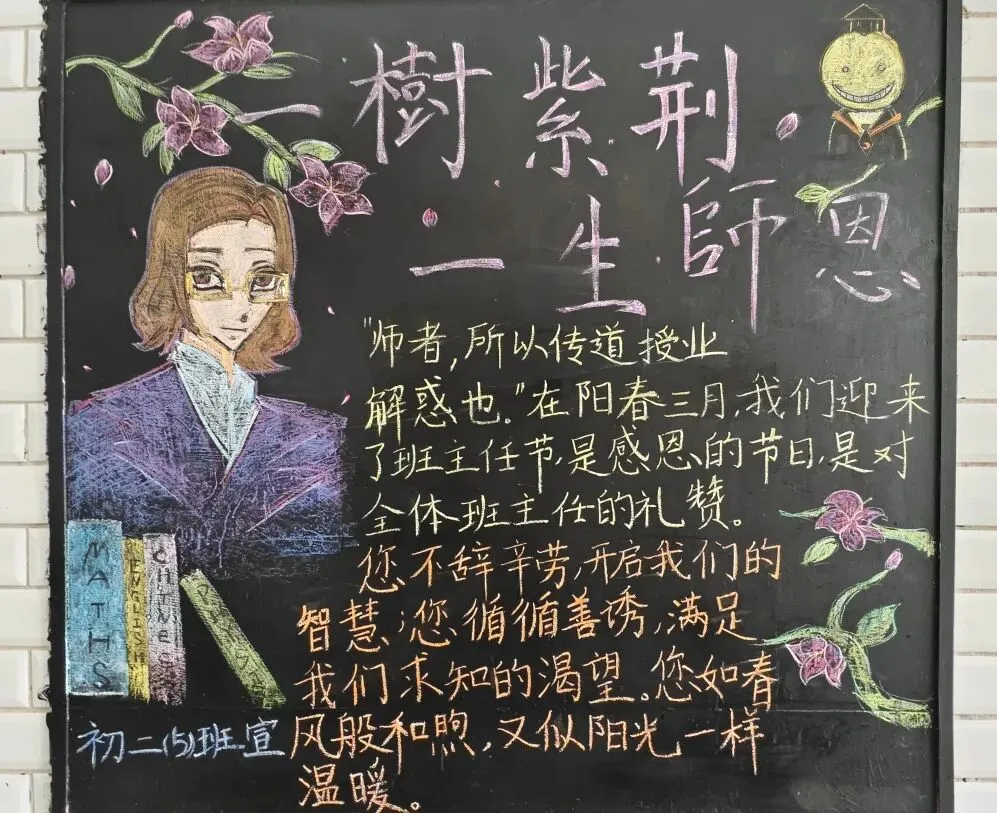 一樹紫荆
一生師恩
"师者，所以传道授业
解惑也。"在阳春三月，我们迎来
了班主任节，是感恩的节日，是对
全体班主任的礼赞。
您不辞辛劳，开启我们的
智慧；您循循善诱，满足
我们求知的渴望。您如春
风般和煦，又似阳光一样
温暖。
MATHS
ENGLISH
CHINESE
初二(5)班宣